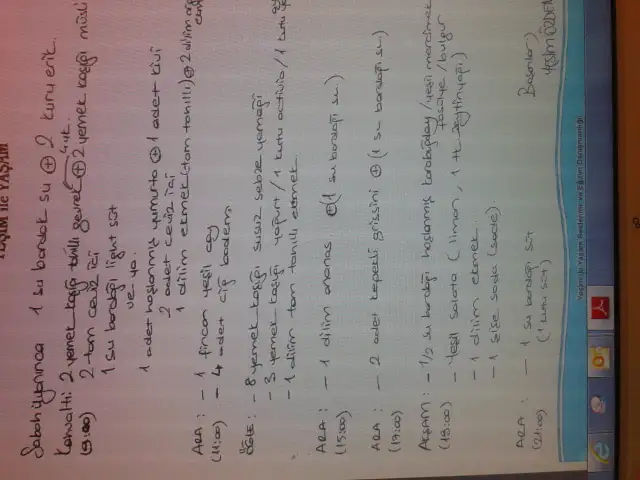 YAŞAM ile YAŞAM
Sabah uyanınca 1 su bardak su ⊕ 2 kuru erik.
Kahvaltı: 2 yemek kaşığı tahıllı gevrek ⊕ 2 yemek kaşığı müsli
(9:00) 2 tam ceviz içi
1 su bardağı light süt
ve ya.
1 adet haşlanmış yumurta ⊕ 1 adet kivi
2 adet ceviz içi
1 dilim ekmek (tam tahıllı) ⊕ 2 dilim
ARA : – 1 fincan yeşil çay
(11:00) – 4 adet çiğ badem
ÖĞLE : – 8 yemek kaşığı susuz sebze yemeği
– 3 yemek kaşığı yoğurt / 1 kutu activia / 1 kutu
– 1 dilim tam tahıllı ekmek.
ARA : – 1 dilim ananas ⊕ (1 su bardağı su)
(15:00)
ARA : – 2 adet kepekli grissini ⊕ (1 su bardağı su)
(17:00)
AKŞAM : – 1/2 su bardağı haşlanmış karabuğday / yeşil mercimek
(19:00) fasülye / bulgur
– Yeşil salata (limon, 1 tk zeytinyağı)
– 1 dilim ekmek
– 1 şişe soda (sade)
ARA : – 1 su bardağı süt
(21:00) (1 kutu süt)
Başarılar)
Yaşam ile Yaşam Beslenme ve Eğitim Danışmanlığı